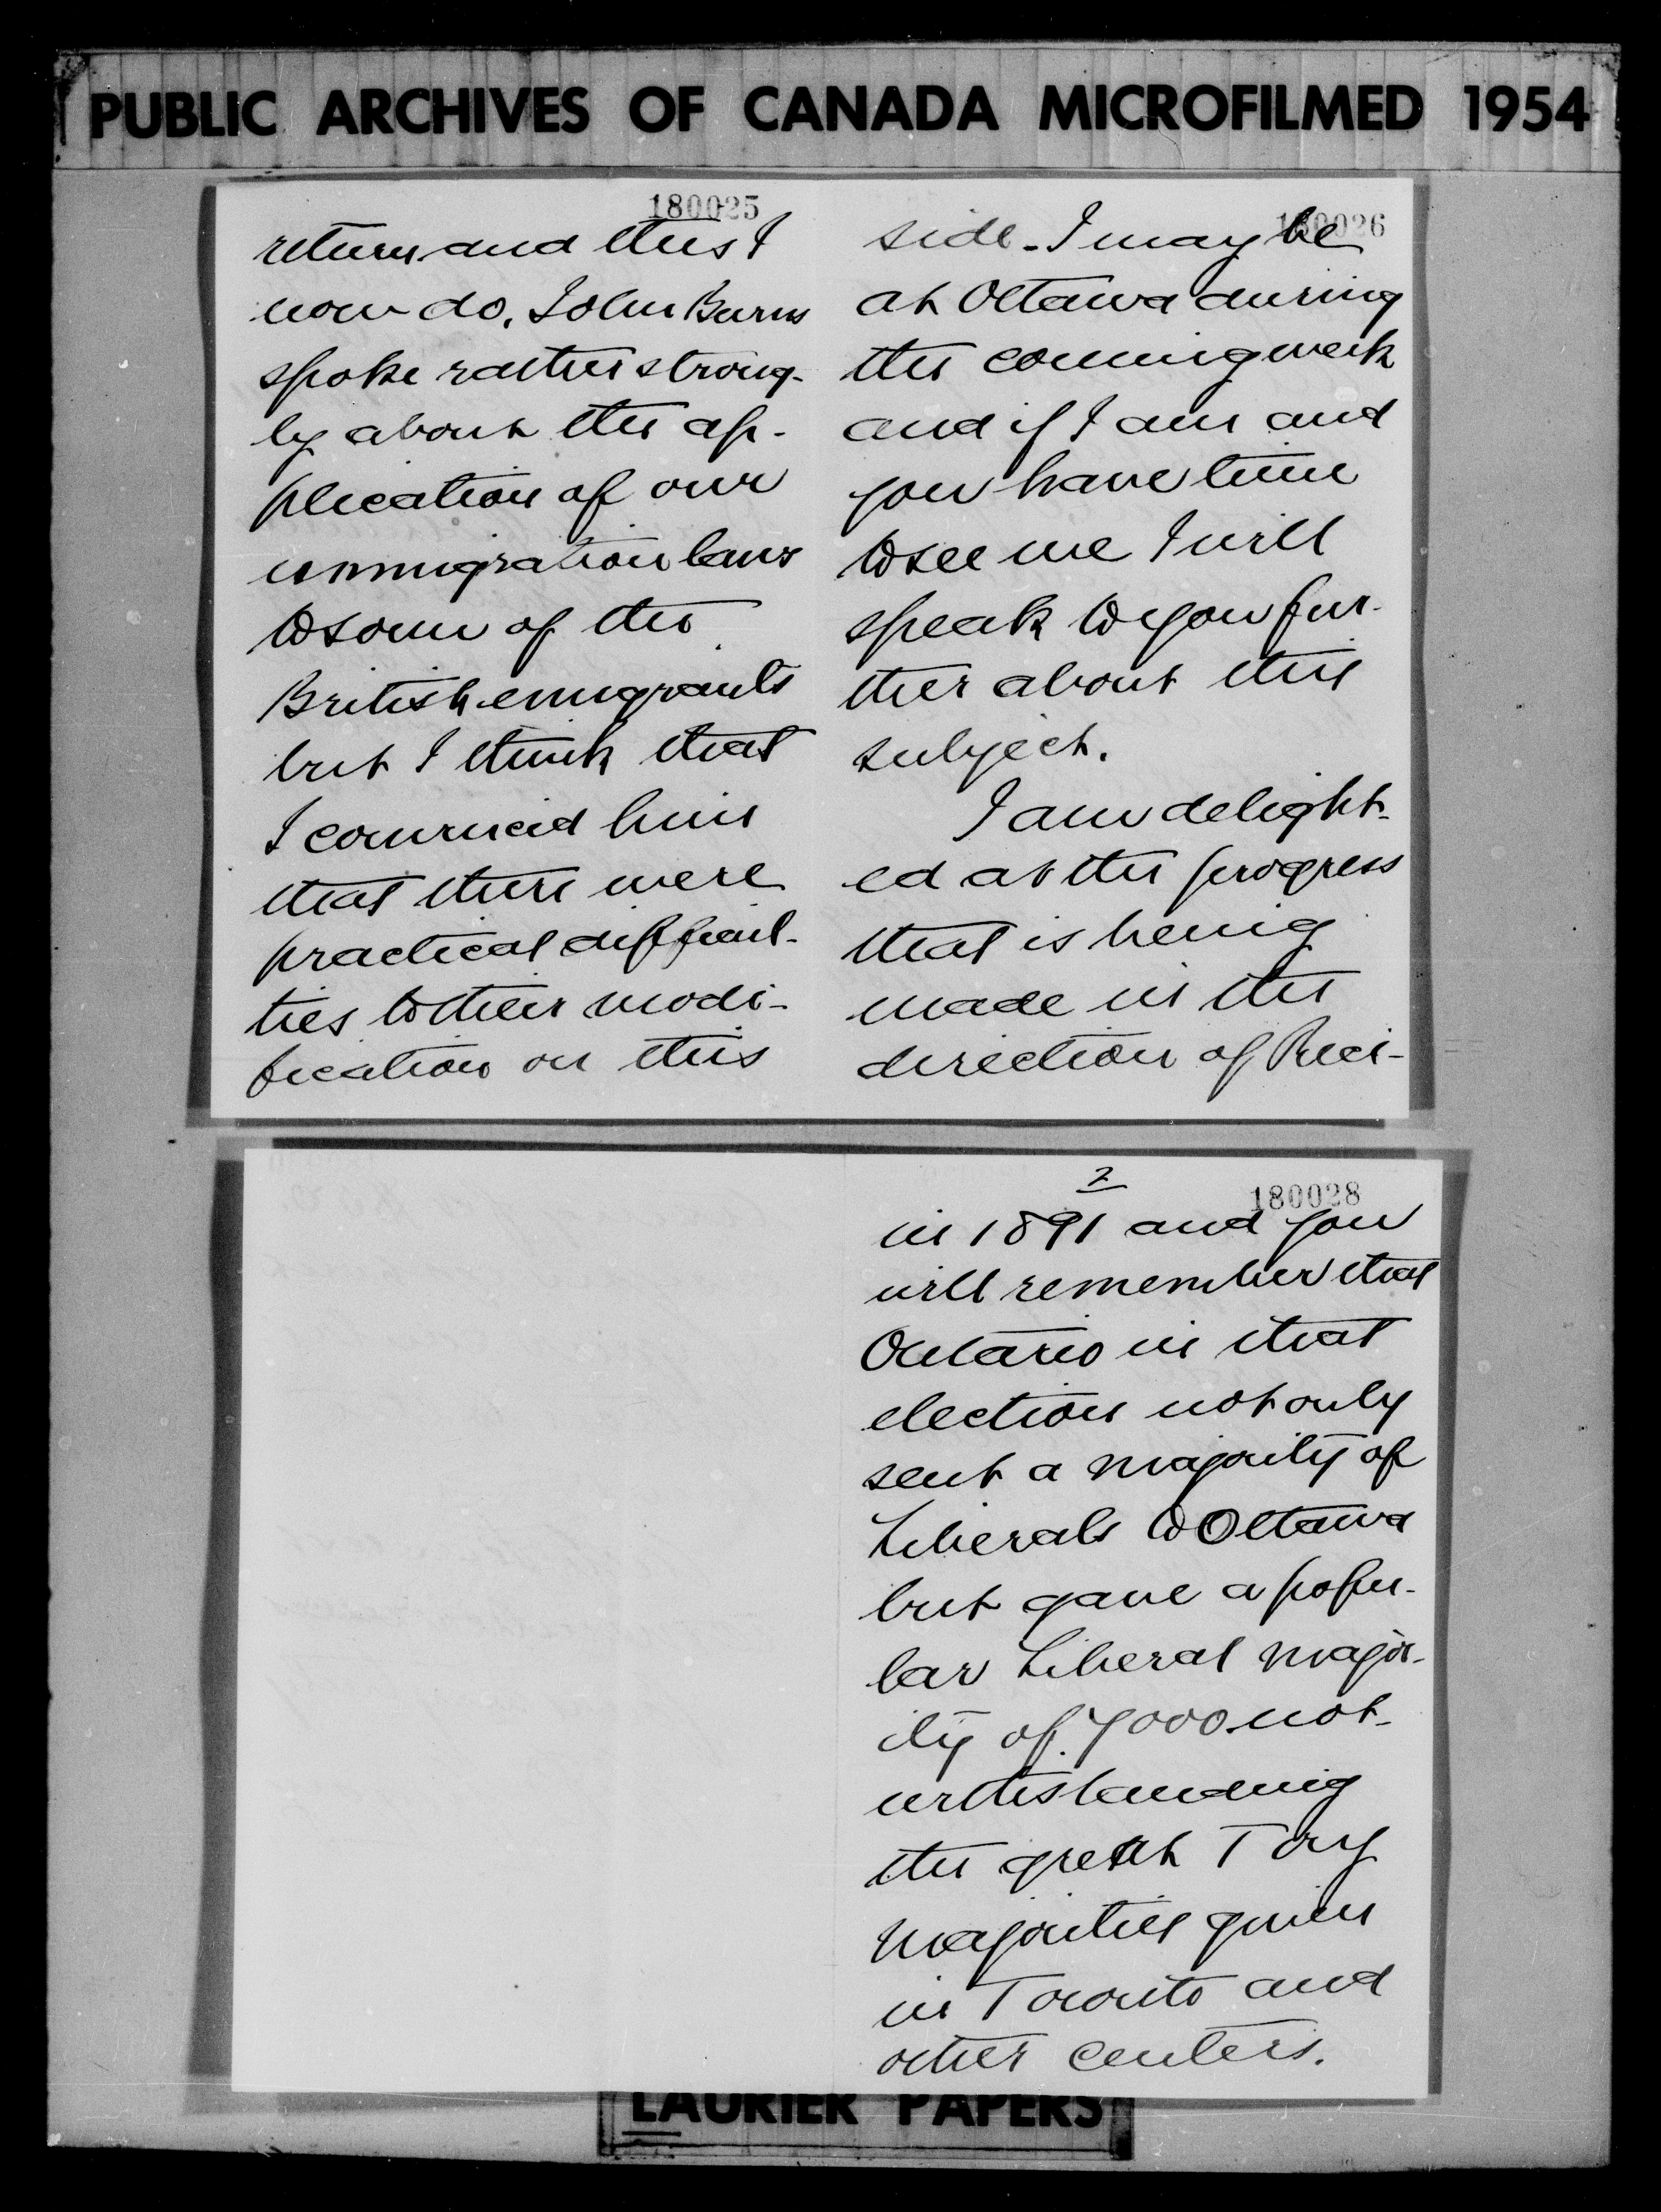 PUBLIC ARCHIVES OF CANADA MICROFILMED 1954
180025
return and this I
now do. John Burns
spoke rather strong-
ly about the ap-
plication of our
immigration laws
to some of the
British emigrants
but I think that
I convinced him
that there were
practical difficul-
ties to their modi-
fication on this
180026
side. I may be
at Ottawa during
the coming week
and if I am and
you have time
to see me I will
speak to you fur-
ther about this
subject.
I am delight-
ed at the progress
that is being
made in the
direction of Reci-
2
180028
in 1891 and you
will remember that
Ontario in that
election not only
sent a majority of
Liberals to Ottawa
but gave a popu-
lar Liberal major-
ity of 7000 not-
withstanding
the great Tory
majorities given
in Toronto and
other centers.
LAURIER PAPERS